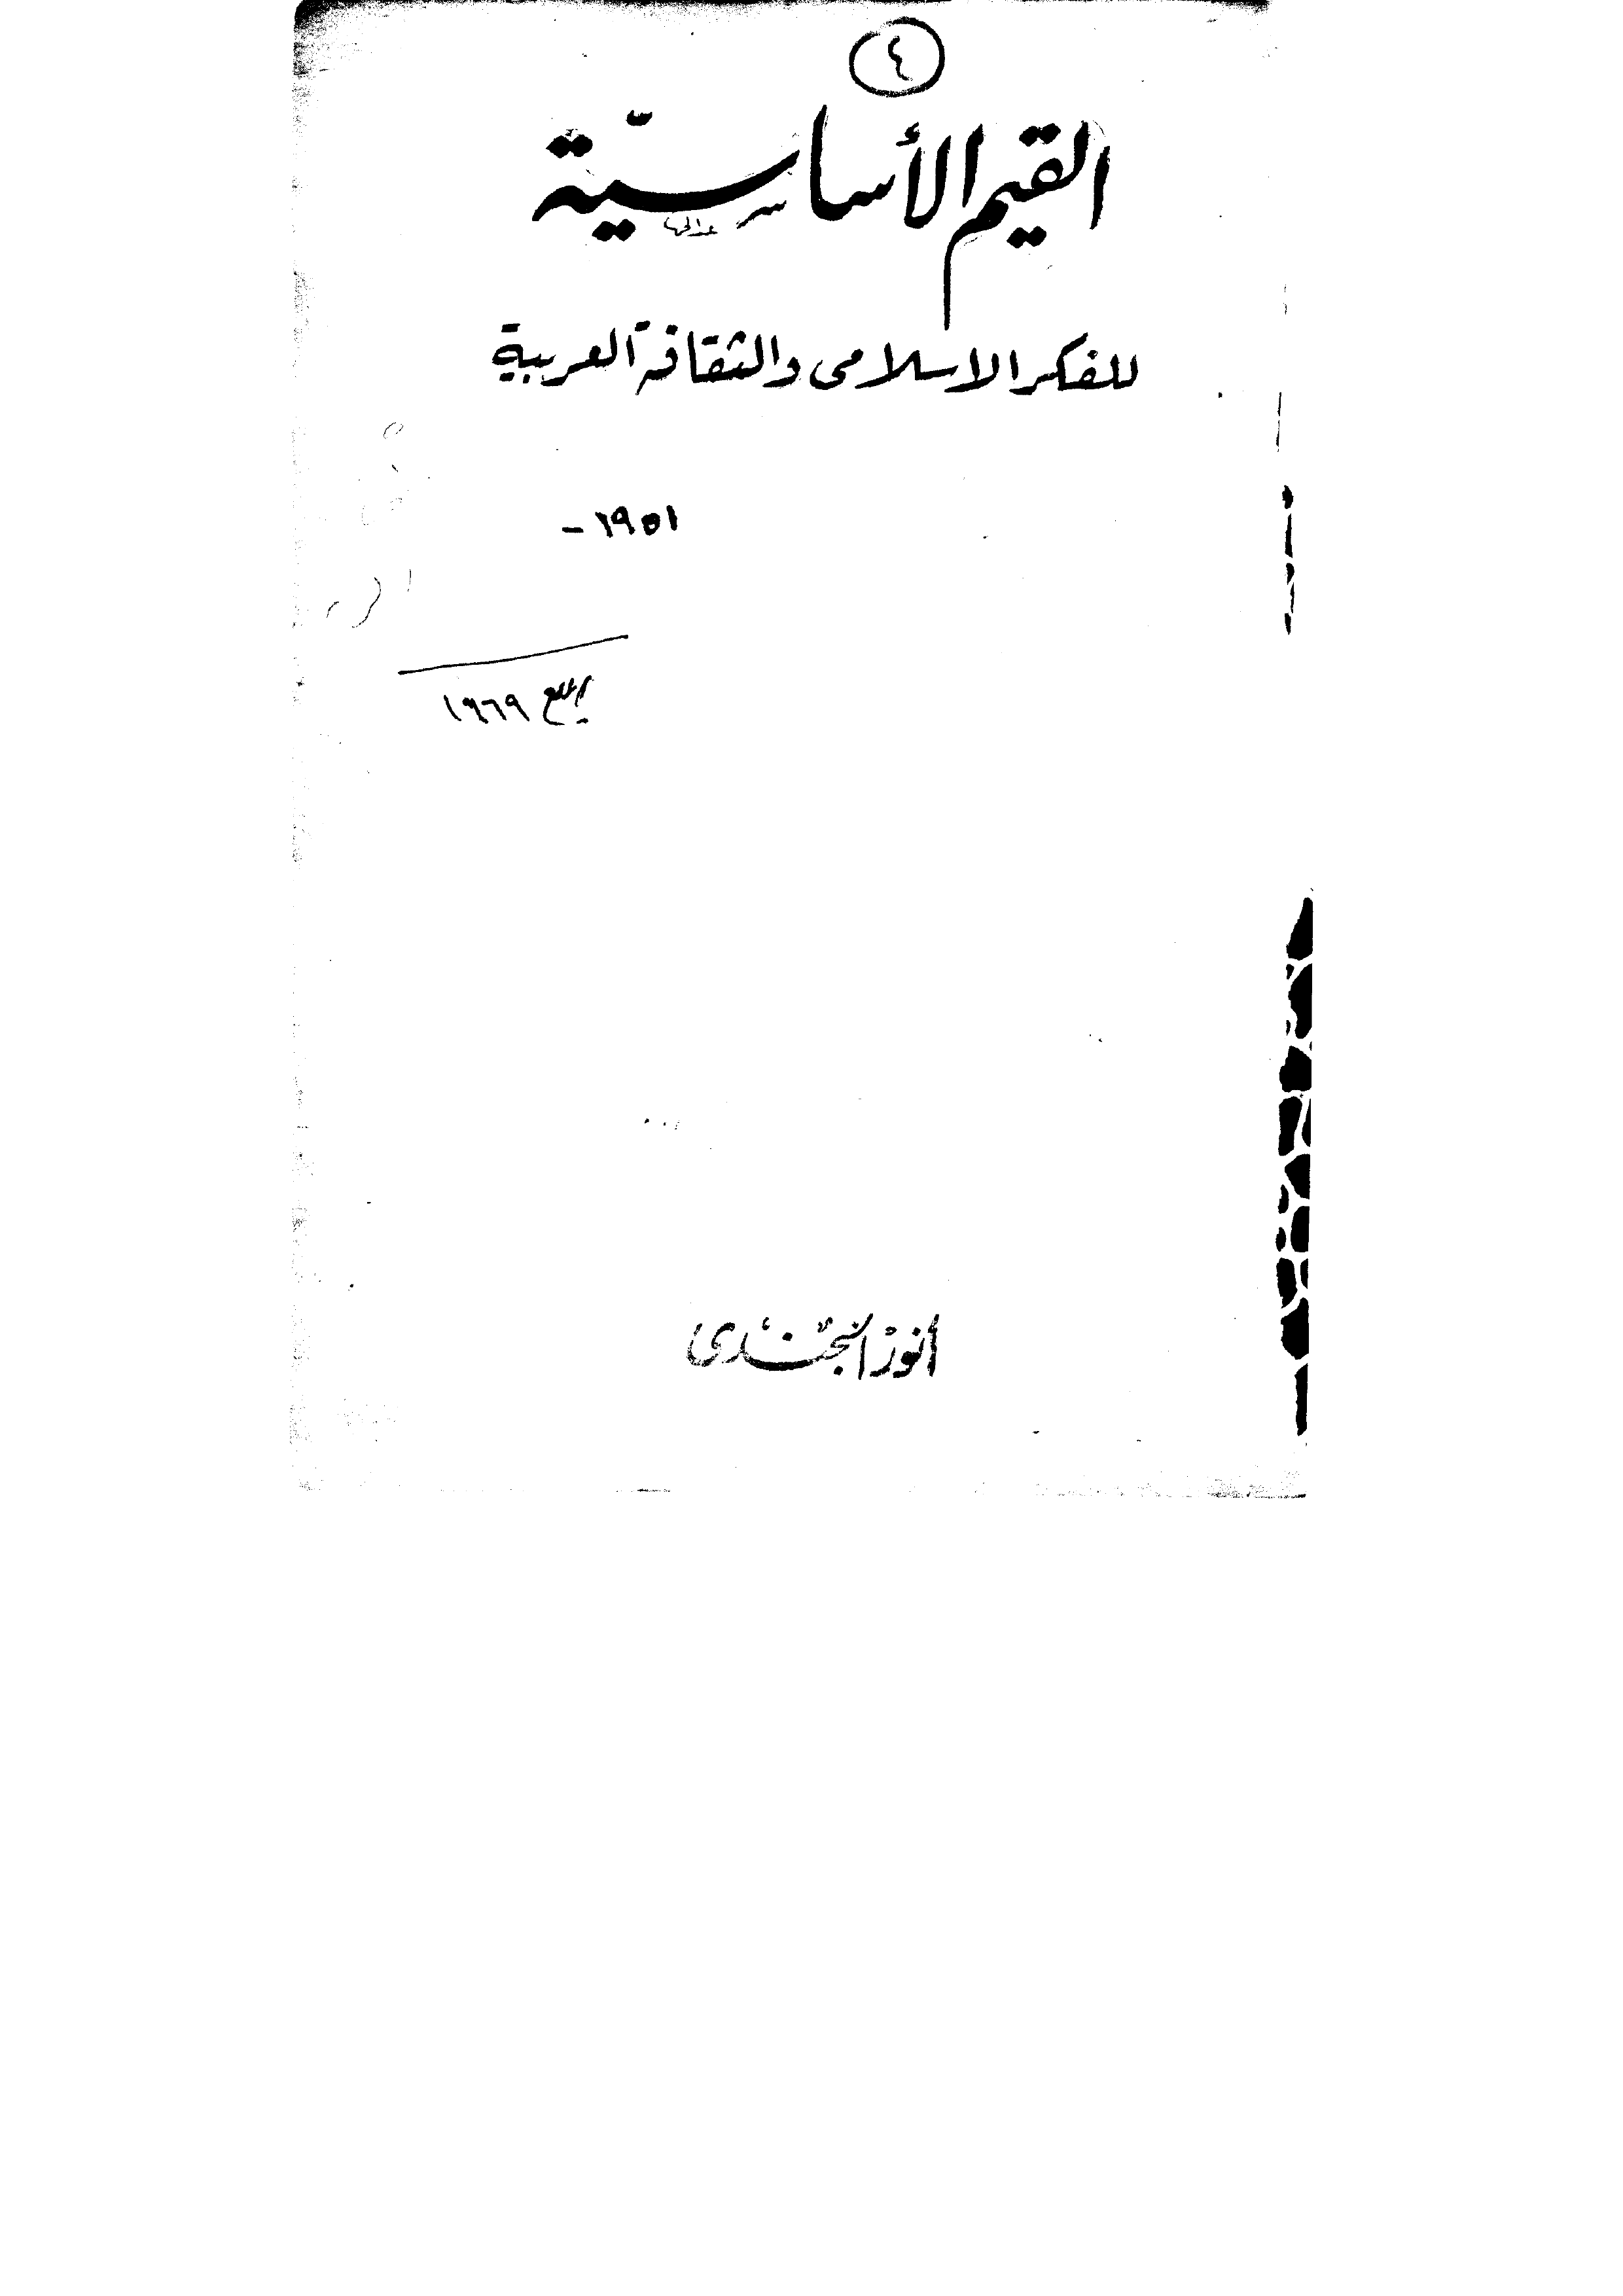 ٤
القيم الأساسيّة
للفكر الاسلامى والثقافة العربية
١٩٥١ -
١٩٦٩
أنور الجندى